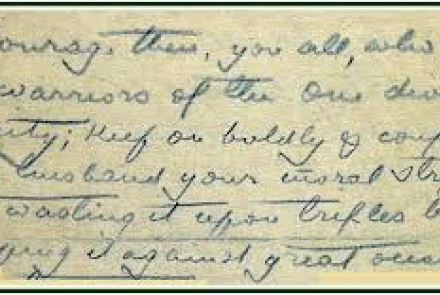 ourage then, you all, who
warriors of the One div
ity; Keep on boldly &
husband your moral str
wasting it upon trifles
ing it against great occa